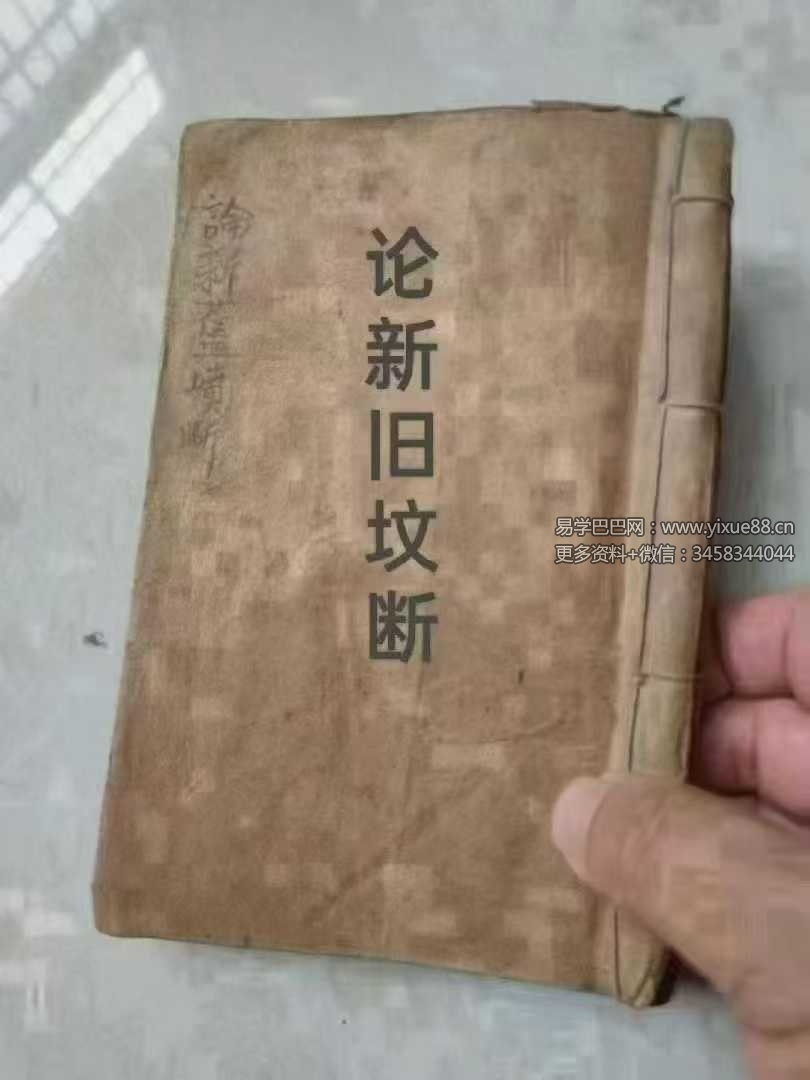 論新舊墳断
论新旧坟断
易学巴巴网：www.yixue88.cn
更多资料+微信：3458344044